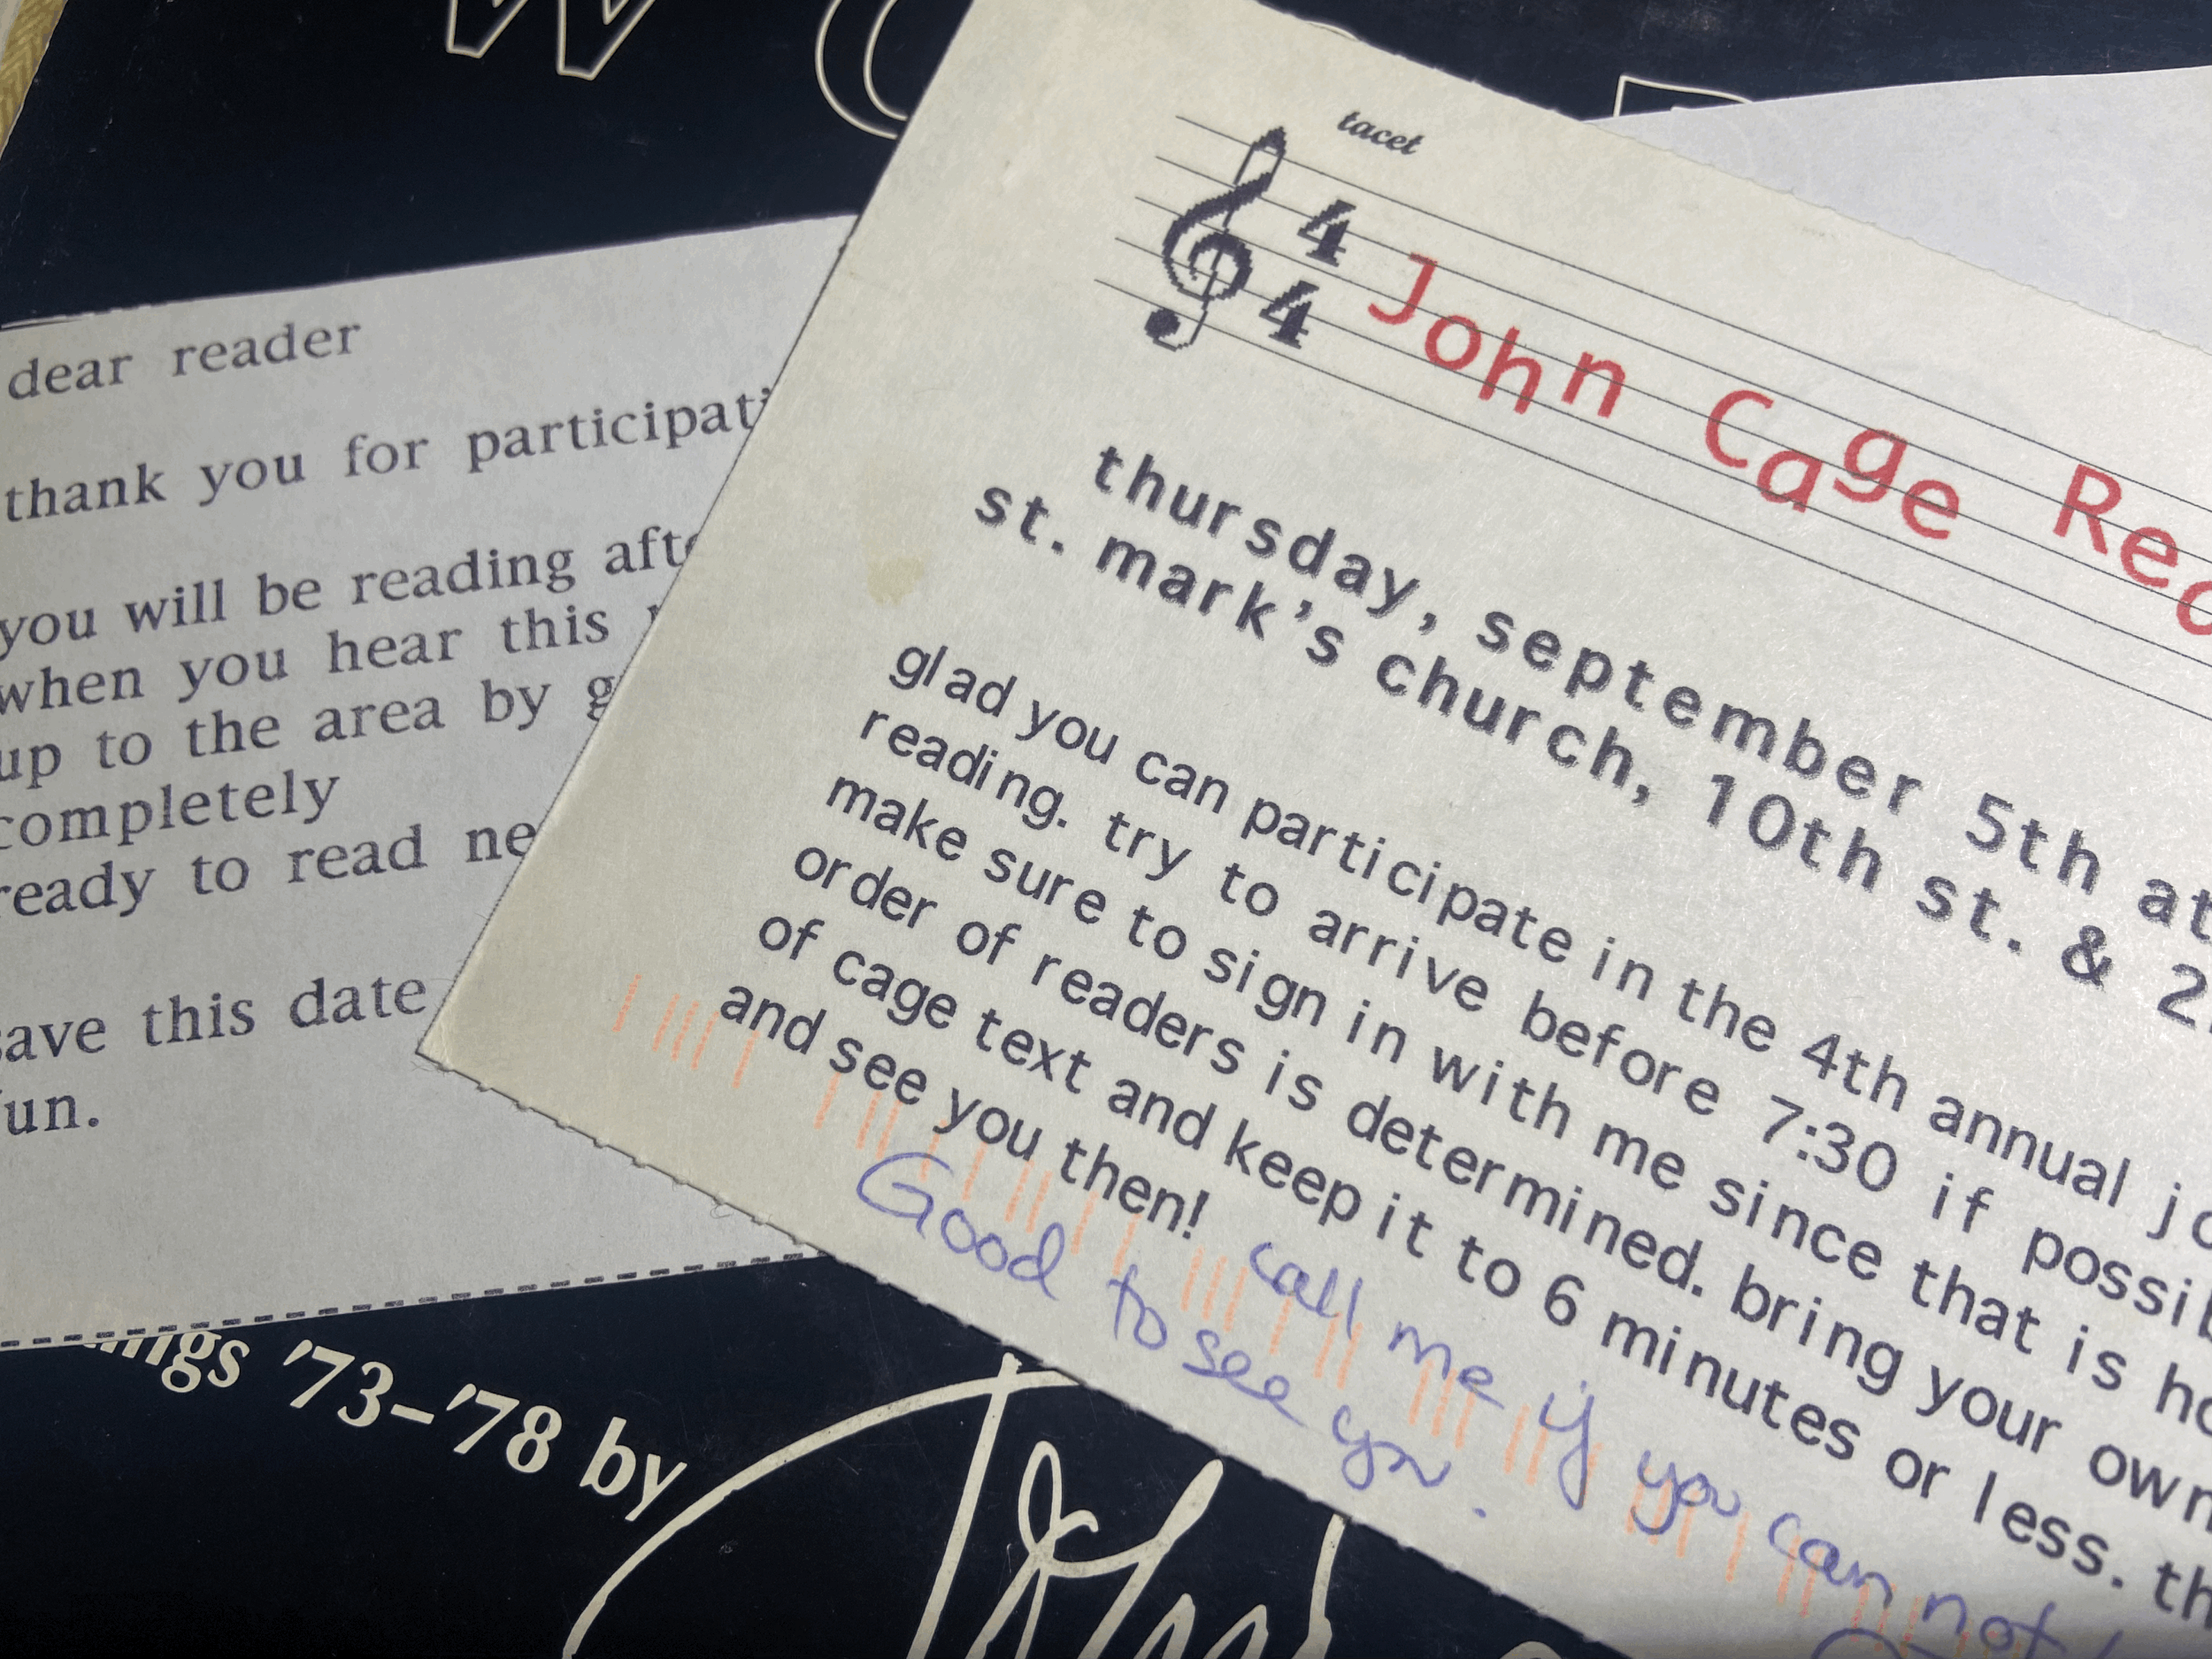 dear reader
thank you for
you will be reading
when you hear this
up to the area by
completely
ready to read
this date
tacet
4
4
John Cage
thursday, september 5th at
st. mark's church, 10th st. &
glad you can participate in the 4th annual
reading. try to arrive before 7:30 if
make sure to sign in with me since that is
order of readers is determined. bring your own
of cage text and keep it to 6 minutes or less.
and see you then!
call me if you can not
Good to see you.
'73–'78 by
John